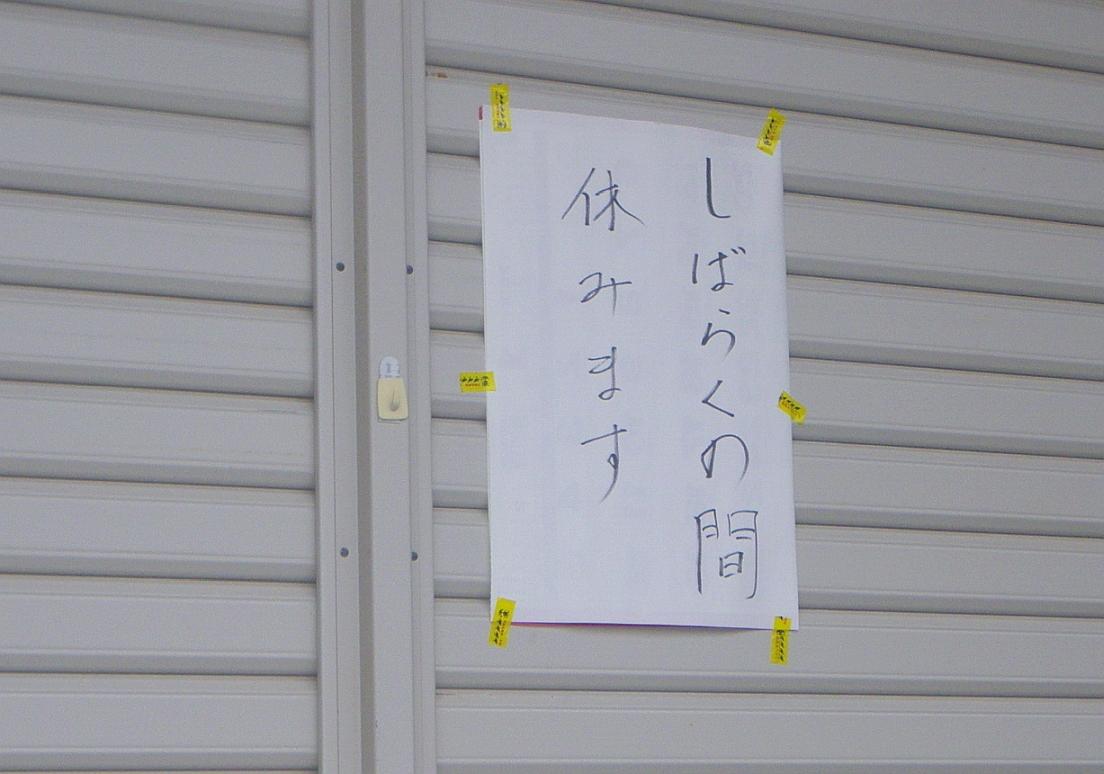 しばらくの間
休みます